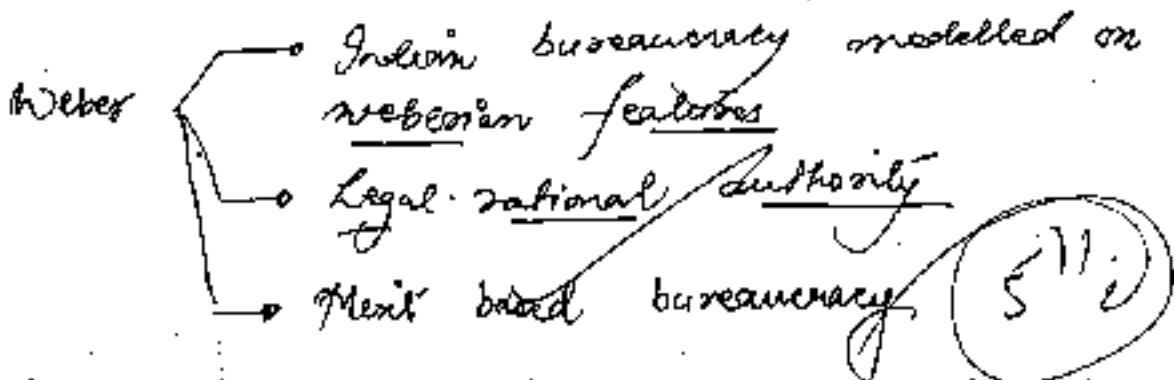 Indian bureaucracy modelled on
Weber
weberian features
Legal-rational authority
Merit based bureaucracy